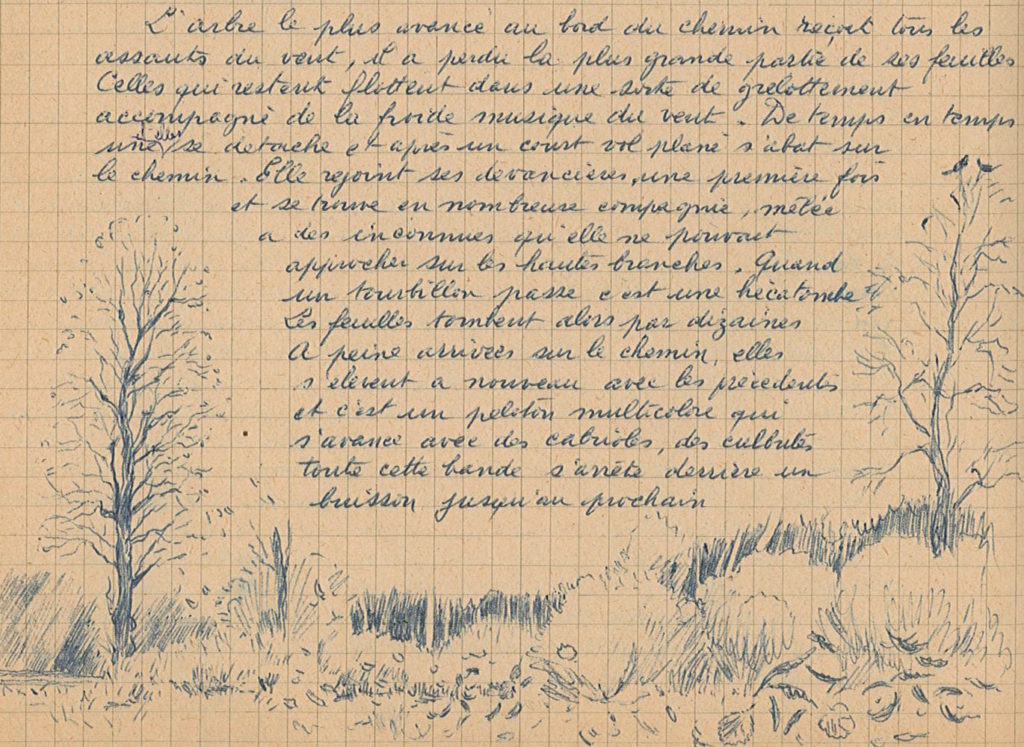 L'arbre le plus avancé au bord du chemin reçoit tous les
assauts du vent, il a perdu la plus grande partie de ses feuilles
Celles qui restent flottent dans une sorte de grelottement
accompagné de la froide musique du vent. De temps en temps
une d'elles se détache et après un court vol plané s'abat sur
le chemin. Elle rejoint ses devancières, une première fois
et se trouve en nombreuse compagnie, mêlée
a des inconnues qu'elle ne pouvait
approcher sur les hautes branches. Quand
un tourbillon passe c'est une hécatombe
Les feuilles tombent alors par dizaines
A peine arrivées sur le chemin, elles
s'élèvent a nouveau avec les précédentes
et c'est un peloton multicolore qui
s'avance avec des cabrioles, des culbutes
toute cette bande s'arrête derrière un
buisson jusqu'au prochain